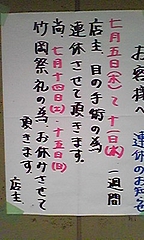 お客様へ 連休のお知らせ
七月五日(木)〜十一日(水)一週間
店主、目の手術の為
連休させて頂きます。
尚、七月十四日(土)、十五日(日)
竹岡祭礼の為、お休みさせて
頂きます。
店主